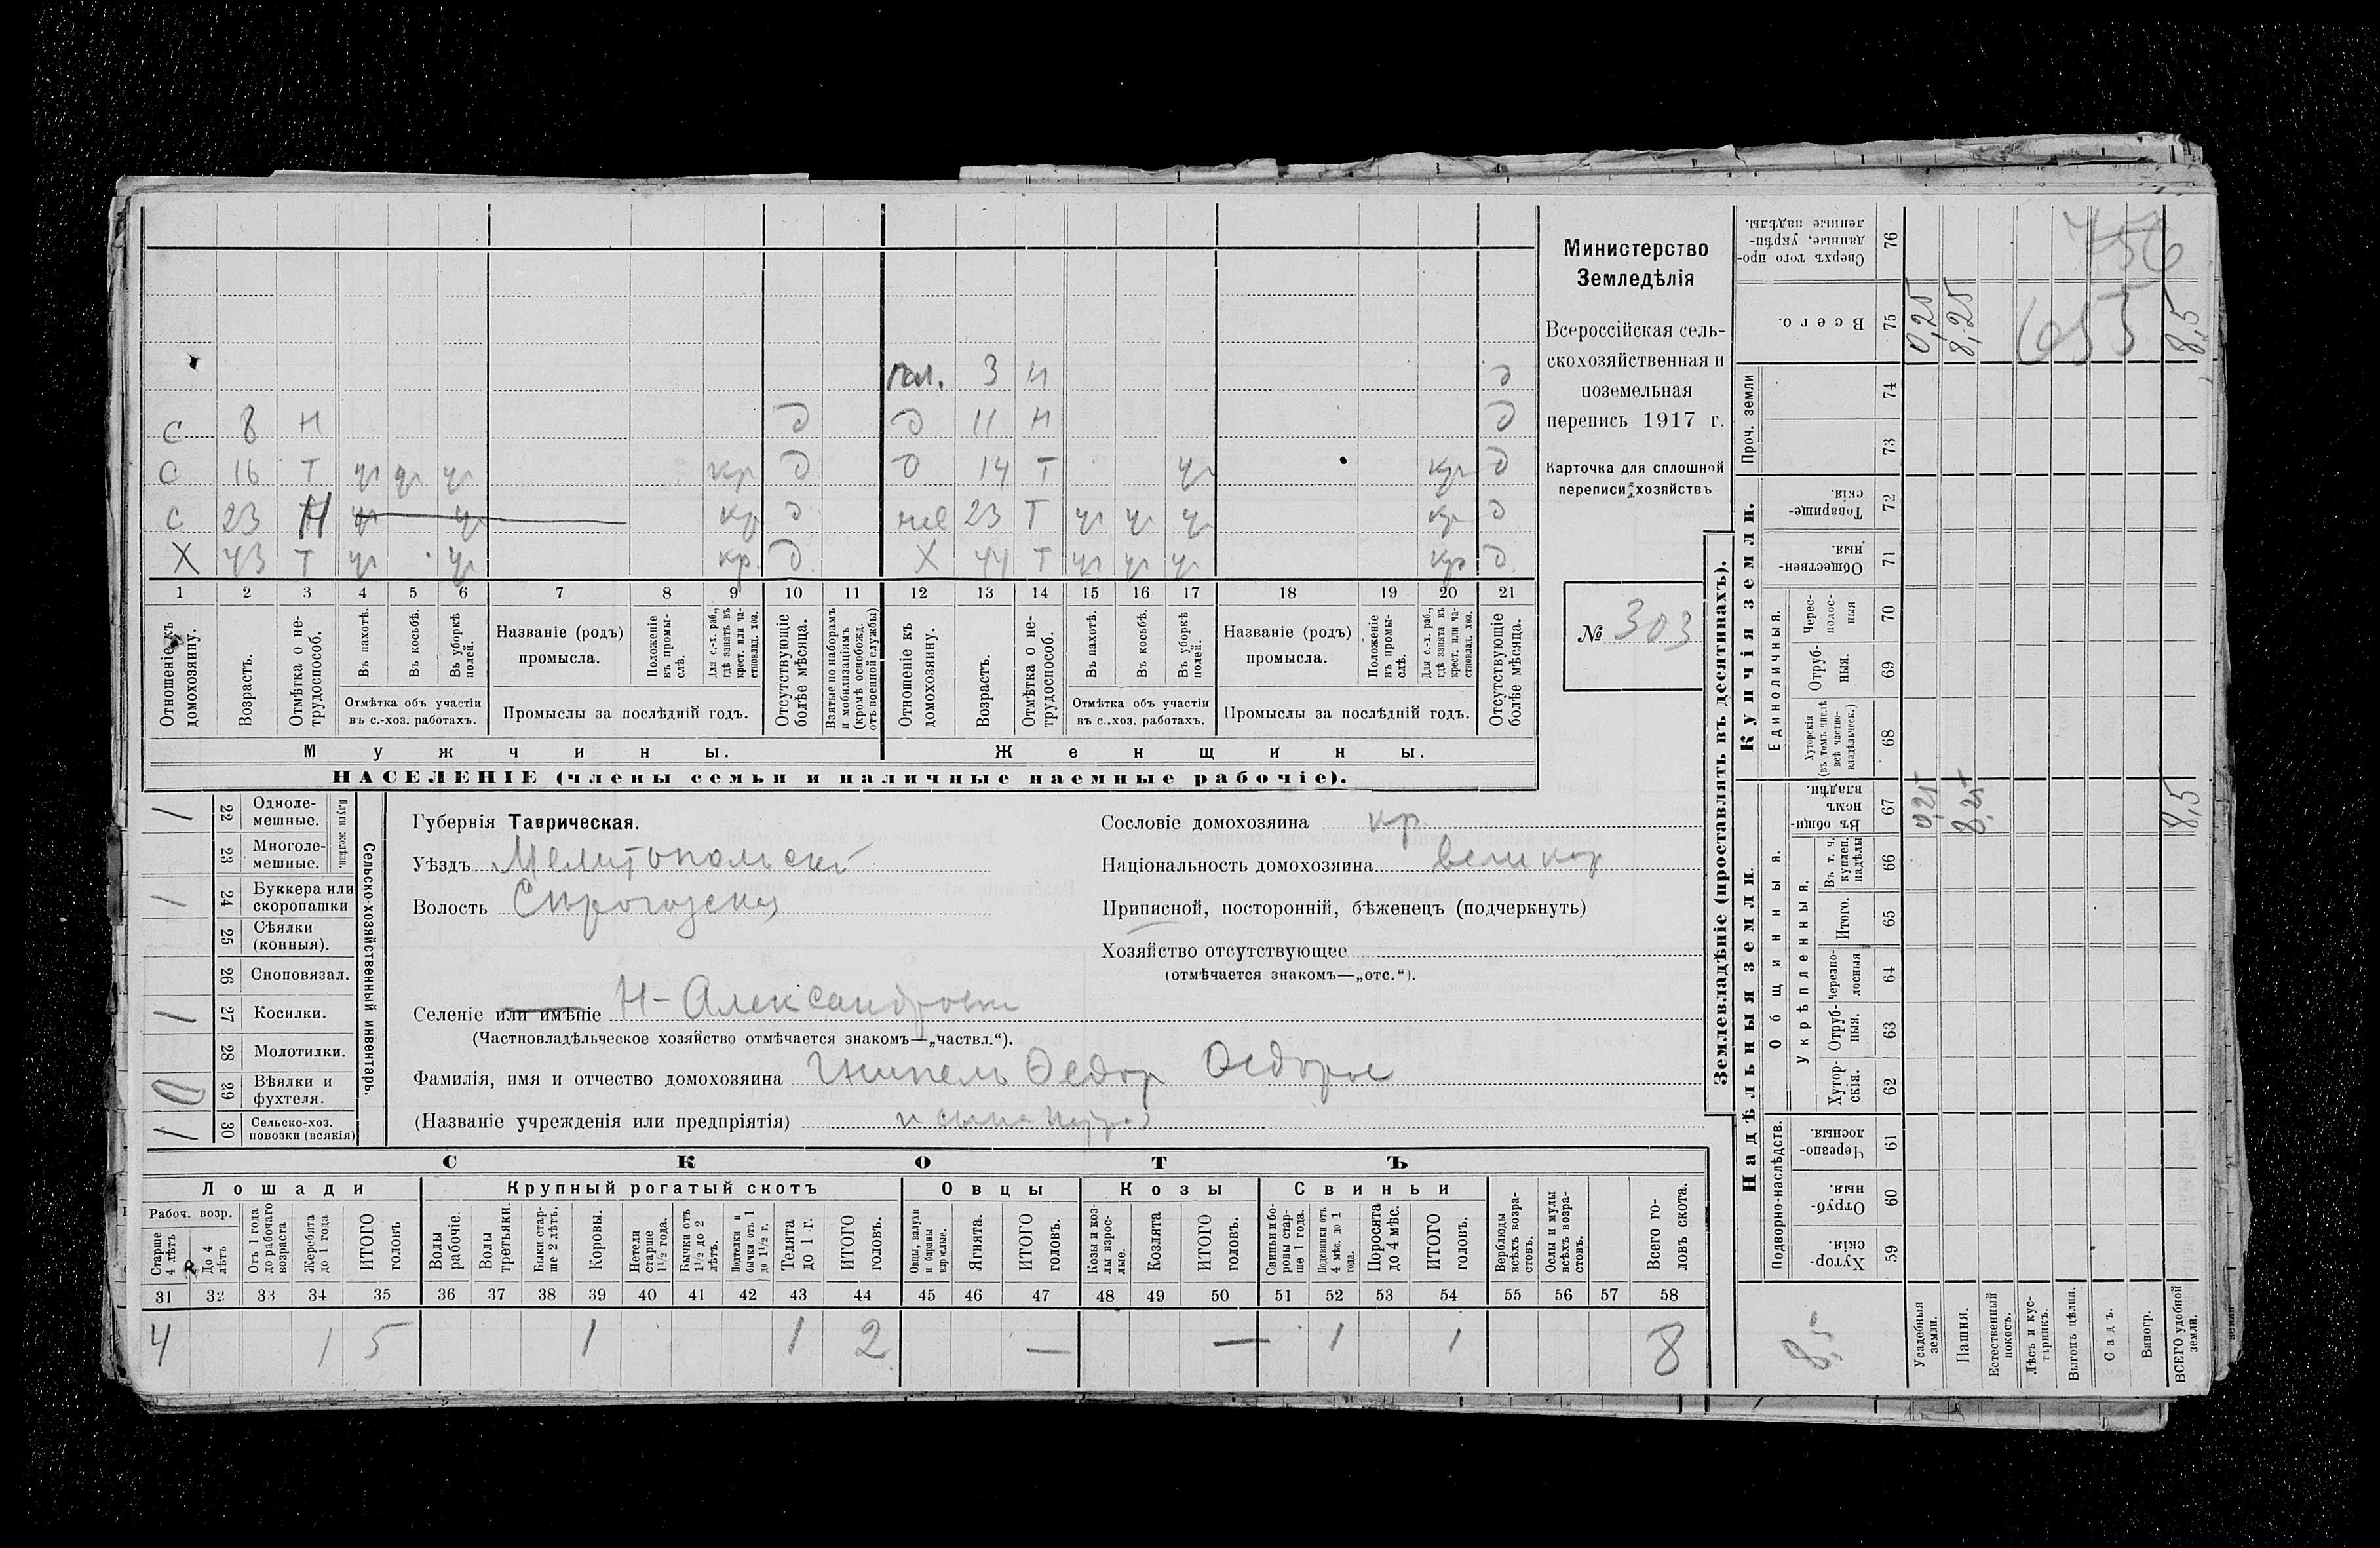 пл. 3 н д
с 8 н д д 11 н д
с 16 т уч уч уч кр д д 14 т уч кр д
с 23 Н уч уч кр д нев 23 т уч уч уч кр д
Х 43 т уч уч кр. д. Х 44 т уч уч уч кр д.
1 2 3 4 5 6 7 8 9 10 11 12 13 14 15 16 17 18 19 20 21
Отношеніе къ домохозяину.
Возрастъ.
Отмѣтка о не-трудоспособ.
Въ пахотѣ.
Въ косьбѣ.
Въ уборкѣ полей.
Отмѣтка объ участіи
въ с.-хоз. работахъ.
Названіе (родъ)
промысла.
Положеніе въ промы-слѣ.
Для с.-х. раб., гдѣ занятъ въ крест. или ча-стновлад. хоз.
Промыслы за послѣдній годъ.
Отсутствующіе болѣе мѣсяца.
Взятые по наборамъ и мобилизаціямъ (кромѣ освобожд. отъ военной службы)
Отношеніе къ домохозяину.
Возрастъ.
Отмѣтка о не-трудоспособ.
Въ пахотѣ.
Въ косьбѣ.
Въ уборкѣ полей.
Отмѣтка объ участіи
въ с.-хоз. работахъ.
Названіе (родъ)
промысла.
Положеніе въ промы-слѣ.
Для с.-х. раб., гдѣ занята въ крест. или ча-стновлад. хоз.
Промыслы за послѣдній годъ.
Отсутствующіе болѣе мѣсяца.
Мужчины. Женщины.
НАСЕЛЕНІЕ (члены семьи и наличные наемные рабочіе).
Министерство
Земледѣлія
Всероссійская сель-
скохозяйственная и
поземельная
перепись 1917 г.
Карточка для сплошной
переписи хозяйствъ
№ 303
Сельско-хозяйственный инвентарь.
Плуги желѣзн.
1 22 Одноле-мешные.
23 Многоле-мешные.
1 24 Буккера или скоропашки
25 Сѣялки (конныя).
26 Сноповязал.
1 27 Косилки.
28 Молотилки.
29 Вѣялки и фухтеля.
1 30 Сельско-хоз. повозки (всякія)
Губернія Таврическая.
Уѣздъ Мелитопольскі
Волость
Селеніе или имѣніе Н-Александровка
(Частновладѣльческое хозяйство отмѣчается знакомъ—„частвл.“).
Фамилія, имя и отчество домохозяина Гнипель Ѳедор Ѳедоров
(Названіе учрежденія или предпріятія)
Сословіе домохозяина кр
Національность домохозяина великор
Приписной, посторонній, бѣженецъ (подчеркнуть)
Хозяйство отсутствующее
(отмѣчается знакомъ—„отс.“).
СКОТЪ
Лошади Крупный рогатый скотъ Овцы Козы Свиньи
Рабоч. возр.
Старше 4 лѣтъ
До 4 лѣтъ
Отъ 1 года до рабочаго возраста
Жеребята до 1 года
ИТОГО головъ
Волы рабочіе.
Волы третьяки.
Быки стар-ше 2 лѣтъ.
Коровы.
Нетели старше 1½ года.
Бычки отъ 1½ до 2 лѣтъ.
Подтелки и бычки отъ 1 до 1½ г.
Телята до 1 г.
ИТОГО головъ.
Овцы, валухи и бараны взрослые.
Ягнята.
ИТОГО головъ.
Козы и коз-лы взрос-лые.
Козлята
ИТОГО головъ.
Свиньи и бо-ровы стар-ше 1 года.
Подсвинки отъ 4 мѣс. до 1 года.
Поросята до 4 мѣс.
ИТОГО головъ.
Верблюды всѣхъ возра-стовъ.
Ослы и мулы всѣхъ возра-стовъ.
Всего го-ловъ скота.
31 32 33 34 35 36 37 38 39 40 41 42 43 44 45 46 47 48 49 50 51 52 53 54 55 56 57 58
4 1 5 1 1 2 — — 1 1 8
Землевладѣніе (проставлять въ десятинахъ).
Надѣльныя земли. Купчія земли.
Подворно-наслѣдств.
Общинныя.
Укрѣпленныя.
Единоличныя.
Проч. земли
Сверхъ того про-данные, укрѣп-ленные надѣлы. 76
Всего. 75
74
73
Товарище-скія. 72
Обществен-ныя. 71
Черес-полос-ныя 70
Отруб-ныя. 69
Хуторскія (въ томъ числѣ всѣ частно-владѣльческ.) 68
Въ общин-номъ владѣн. 67
Въ т. ч. куплен. надѣлы 66
Итого. 65
Черезпо-лосныя 64
Отруб-ныя. 63
Хутор-скія. 62
Черезпо-лосныя 61
Отруб-ныя. 60
Хутор-скія 59
Усадебныя земли. 0,25 0,25
Пашня. 8,25 8,25
Естественный покосъ.
Лѣсъ и кус-тарникъ.
Выгонъ цѣлин.
Садъ.
Виногр.
ВСЕГО удобной земли. 8,5 8,5
8,5
756
653